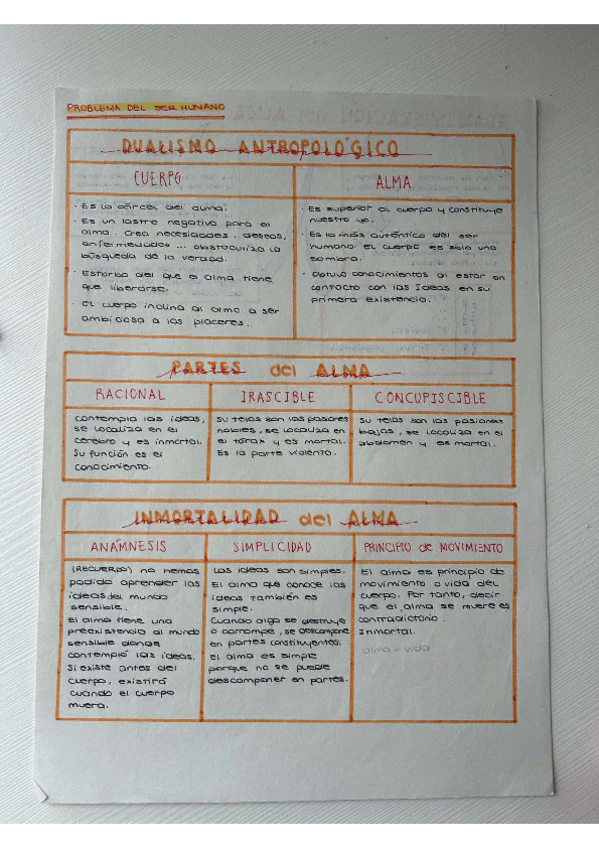 PROBLEMA DEL SER HUMANO
DUALISMO ANTROPOLÓGICO
CUERPO
· Es la cárcel del alma.
· Es un lastre negativo para el
alma, crea necesidades, deseos,
enfermedades ... obstaculiza la
búsqueda de la verdad.
· Estorbo del que el alma tiene
que liberarse.
· El cuerpo inclina al alma a ser
ambiciosa a los placeres.
ALMA
· Es superior al cuerpo y constituye
nuestro yo.
· Es lo más auténtico del ser
humano. El cuerpo es solo una
sombra.
· Obtuvo conocimientos al estar en
contacto con las Ideas en su
primera existencia.
PARTES del ALMA
RACIONAL
Contempla las ideas,
se localiza en el
cerebro y es inmortal.
Su función es el
conocimiento.
IRASCIBLE
Su telos son las pasiones
nobles, se localiza en
el tórax y es mortal.
Es la parte violenta.
CONCUPISCIBLE
Su telos son las pasiones
bajas, se localiza en el
abdomen y es mortal.
INMORTALIDAD del ALMA
ANÁMNESIS
(RECUERDO) no hemos
podido aprender las
ideas del mundo
sensible.
El alma tiene una
preexistencia al mundo
sensible donde
contempló las ideas.
Si existe antes del
cuerpo, existirá
cuando el cuerpo
muera.
SIMPLICIDAD
Las ideas son simples.
El alma que conoce las
ideas también es
simple.
Cuando algo se destruye
o corrompe, se descompone
en partes constituyentes.
El alma es simple
porque no se puede
descomponer en partes.
PRINCIPIO de MOVIMIENTO
El alma es principio de
movimiento o vida del
cuerpo. Por tanto, decir
que el alma se muere es
contradictorio.
Inmortal.
alma = vida